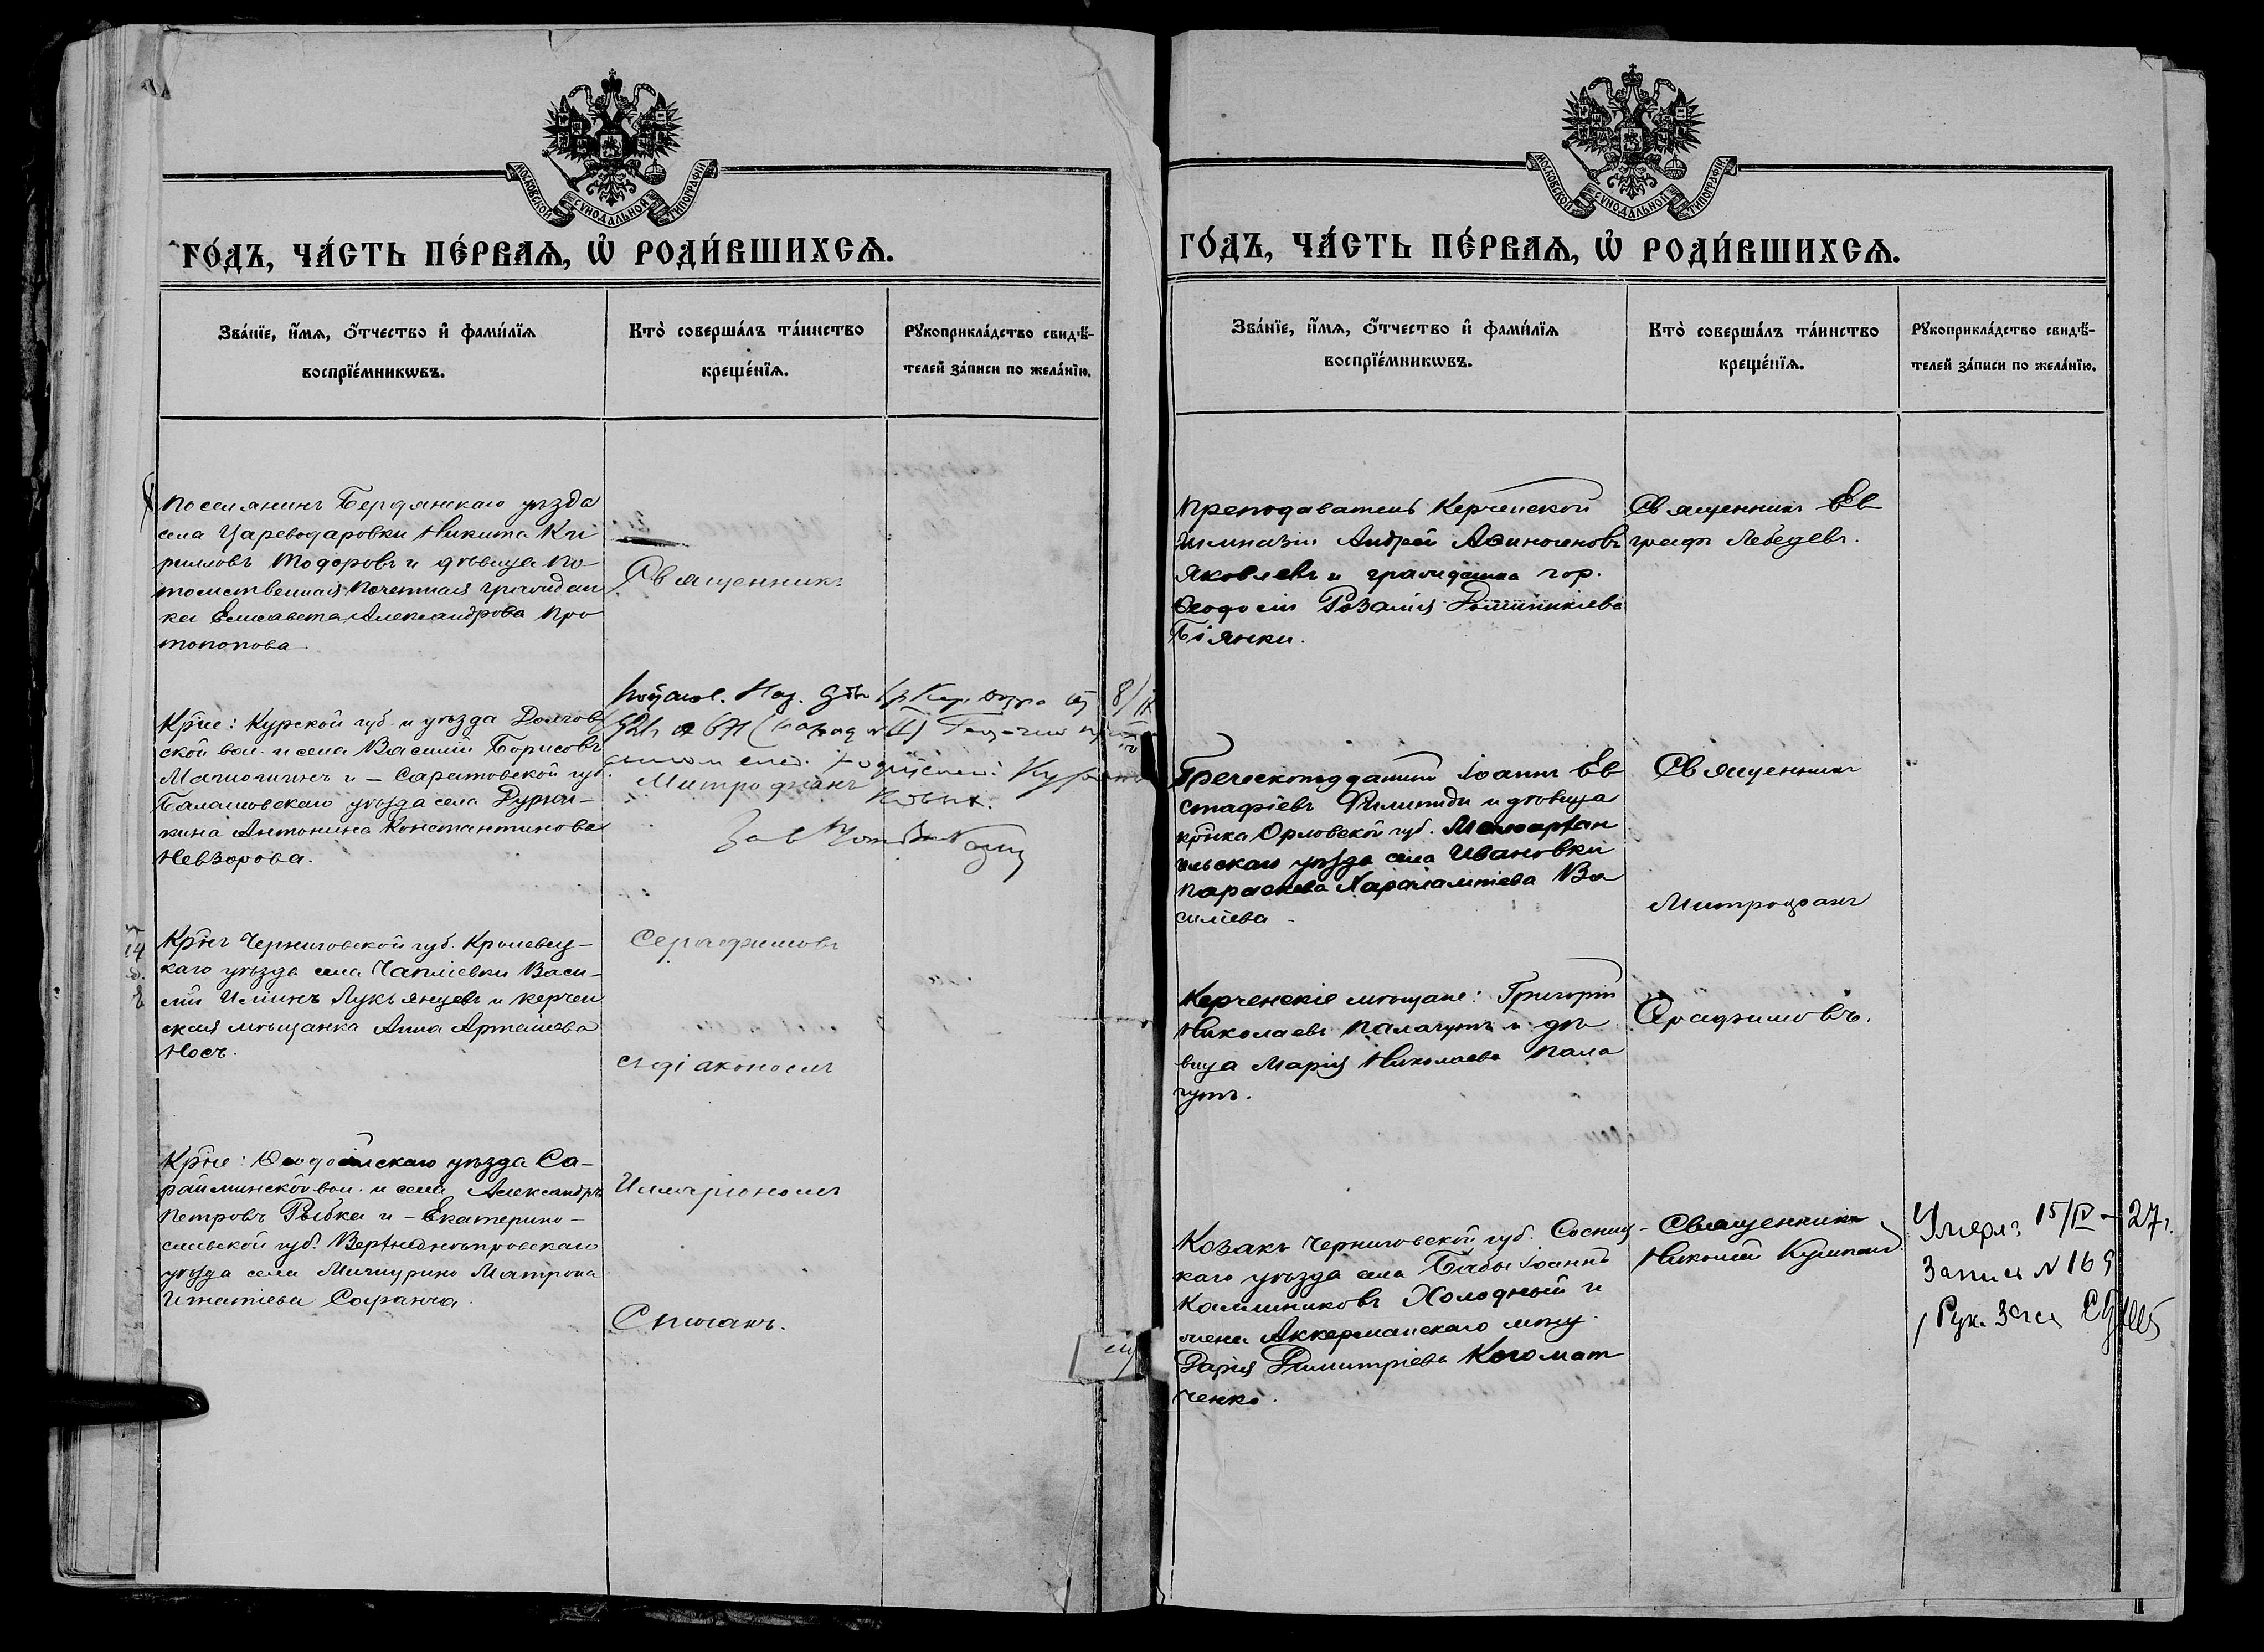 МОСКОВСКОЙ СѴНОДАЛЬНОЙ ТИПОГРАФІИ
ГО́ДЪ, ЧА́СТЬ ПЕ́РВАѦ, Ѡ҆ РОДИ́ВШИХСѦ.
Зва́нїе, и҆́мѧ, ѻ҆́тчество и҆ фами́лїѧ
воспрїе́мникѡвъ.
Кто̀ соверша́лъ та́инство
креще́нїѧ.
Рꙋкоприкла́дство свидѣ́-
телей за́писи по жела́нїю.
Поселянинъ Бердянскаго уѣзда
села Цареводаровки Никита Ки
рилловъ Тодоровъ и дѣвица по
томственная почетная граждан
ка Елисавета Александрова Про
топопова.
Священникъ
Кр̃не: Курской губ. и уѣзда Долгов
ской вол. и села Василій Борисовъ
и – Саратовской губ.
Балашовскаго уѣзда села Дурни-
кина Антонина Константинова
Невзорова.
Митрофанъ
Кр̃нъ Черниговской губ. Кролевец-
каго уѣзда села Чаплиевки Васи-
лій Илiинъ Лукьянцевъ и керчен
ская мѣщанка Анна Артемова
Носъ.
14
Серафимовъ
съ діакономъ
Кр̃не: Ѳеодосійскаго уѣзда Са-
райминской вол. и села Александръ
Петровъ Рыбка и – Екатерино-
славской губ. Верхнеднѣпровскаго
уѣзда села Мишурино Матрона
Игнатіева Саранча.
Илларіономъ
Спиганъ.
МОСКОВСКОЙ СѴНОДАЛЬНОЙ ТИПОГРАФІИ
ГО́ДЪ, ЧА́СТЬ ПЕ́РВАѦ, Ѡ҆ РОДИ́ВШИХСѦ.
Зва́нїе, и҆́мѧ, ѻ҆́тчество и҆ фами́лїѧ
воспрїе́мникѡвъ.
Кто̀ соверша́лъ та́инство
креще́нїѧ.
Рꙋкоприкла́дство свидѣ́-
телей за́писи по жела́нїю.
Преподаватель Керченской
Гимназіи Андрей Аѳиногеновъ
Яковлевъ и гражданка гор.
Ѳеодосіи Розалія Доминикіева
Біянки.
Священникъ Ев
графъ Лебедевъ.
Греческоподданный Іоаннъ Ев
стафіевъ Филипиди и дѣвица
кр̃нка Орловской губ. Малоархан
гельскаго уѣзда села Ивановки
Параскева Харалампіева Ва
силіева
Священникъ
Митрофанъ
Керченскіе мѣщане: Григорій
Николаевъ Палагутъ и дѣ
вица Марія Николаева Пала
гутъ.
Серафимовъ.
Козакъ Черниговской губ. Сосниц-
каго уѣзда села Бабы Іоаннъ
Каллиниковъ Холодный и
жена Аккерманскаго мѣщ.
Дарія Димитріева Коломат
ченко.
Священникъ
Николай
Умерла 15/IV – 27г.
Запись № 169